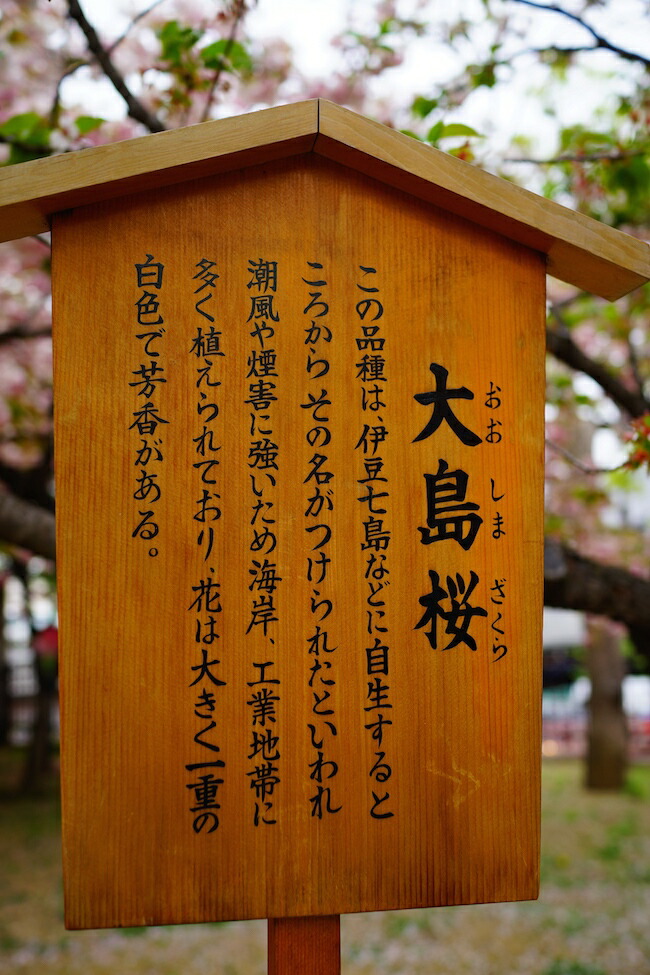 おおしまざくら
大島桜
この品種は、伊豆七島などに自生すると
ころから その名がつけられたといわれ
潮風や煙害に強いため海岸、工業地帯に
多く植えられており、花は大きく一重の
白色で芳香がある。